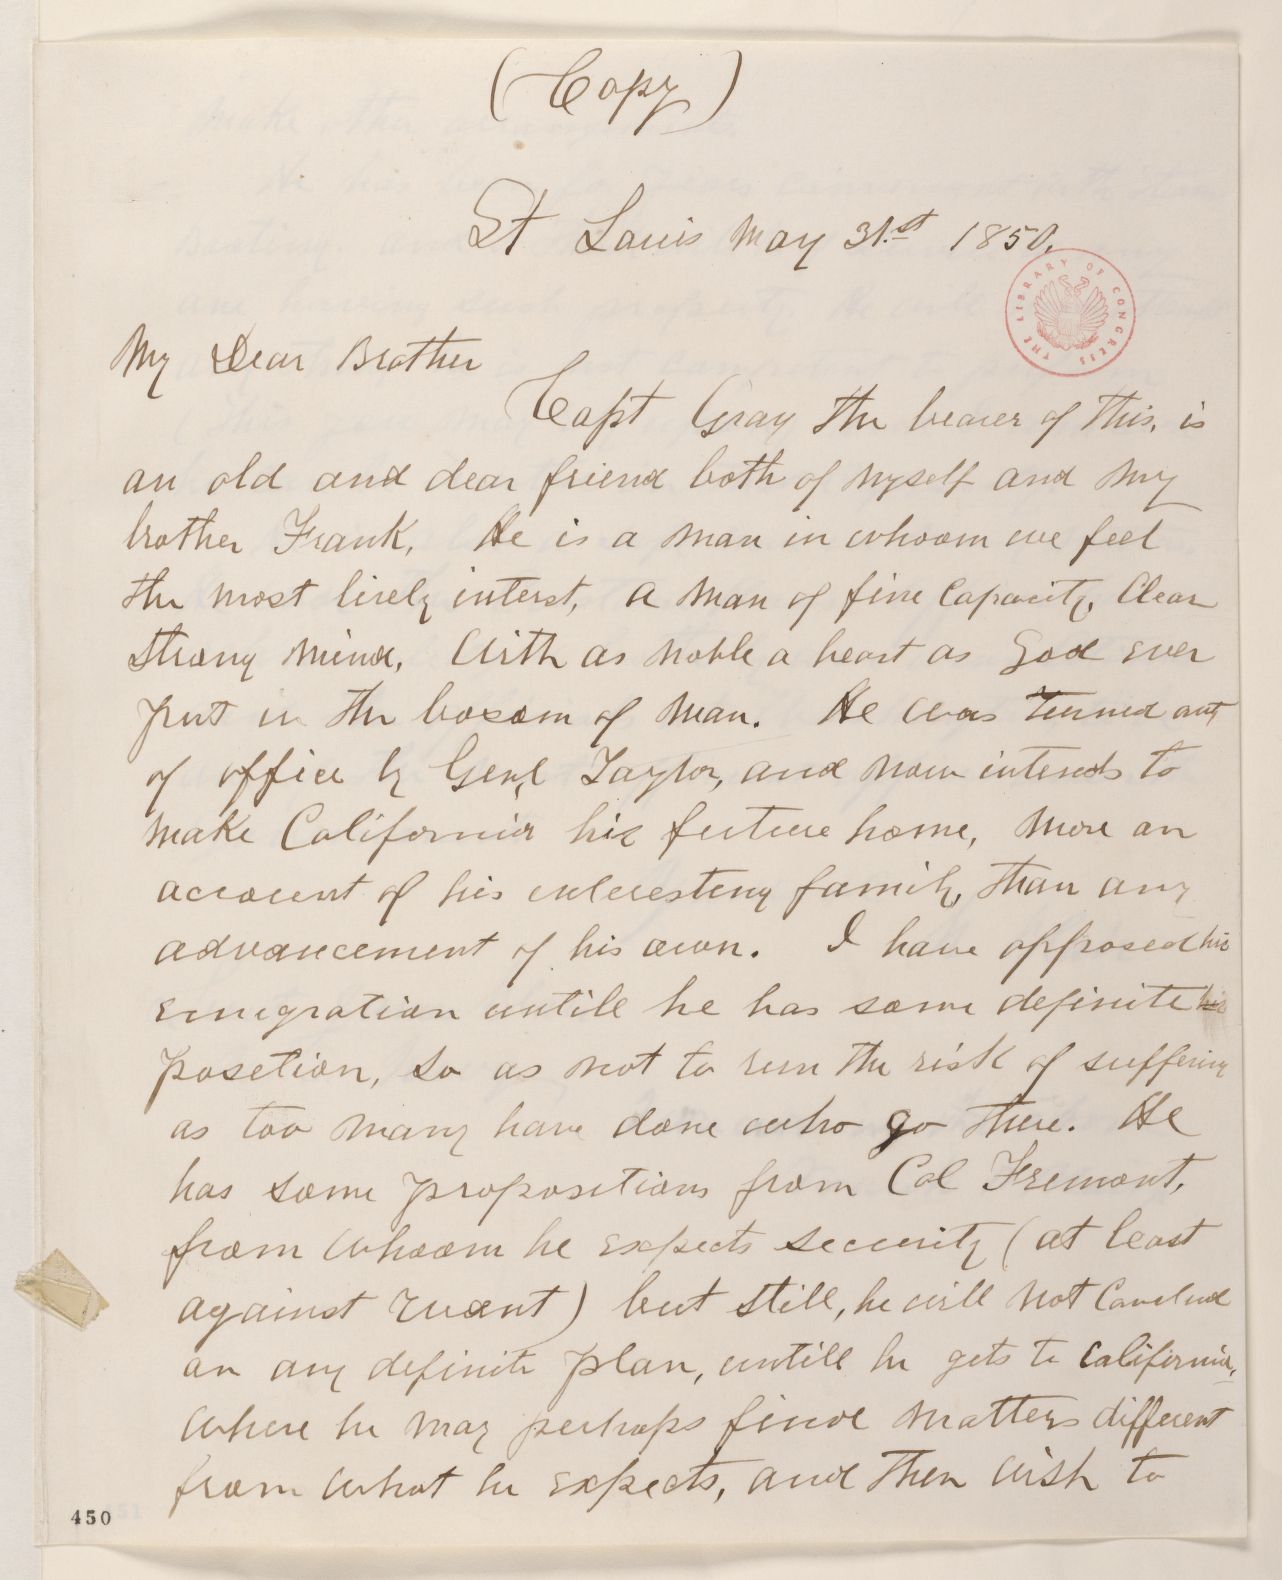 (Copy)
St Louis May 31.st 1850.
THE LIBRARY OF CONGRESS
My Dear Brother
Capt Gray the bearer of this, is
an old and dear friend both of myself and my
brother Frank, He is a man in whoom we feel
the most lively interst, a man of fine Capacity, Clear
strong mind, With as noble a heart as God ever
put in the bosom of man. He was turned out
of office by Genl Taylor, and now intends to
make California his future home, more on
account of his interesting family, than any
advancement of his own. I have opposed his
emigration untill he has some definite
position, so as not to run the risk of suffering
as too many have done who go there. He
has some propositions from Col Fremont,
from Whoom he expects security (at least
against want) but still, he will not Conclude
on any definite plan, untill he gets to California,
Where he may perhaps find matters different
from What he expects, and then Wish to
450